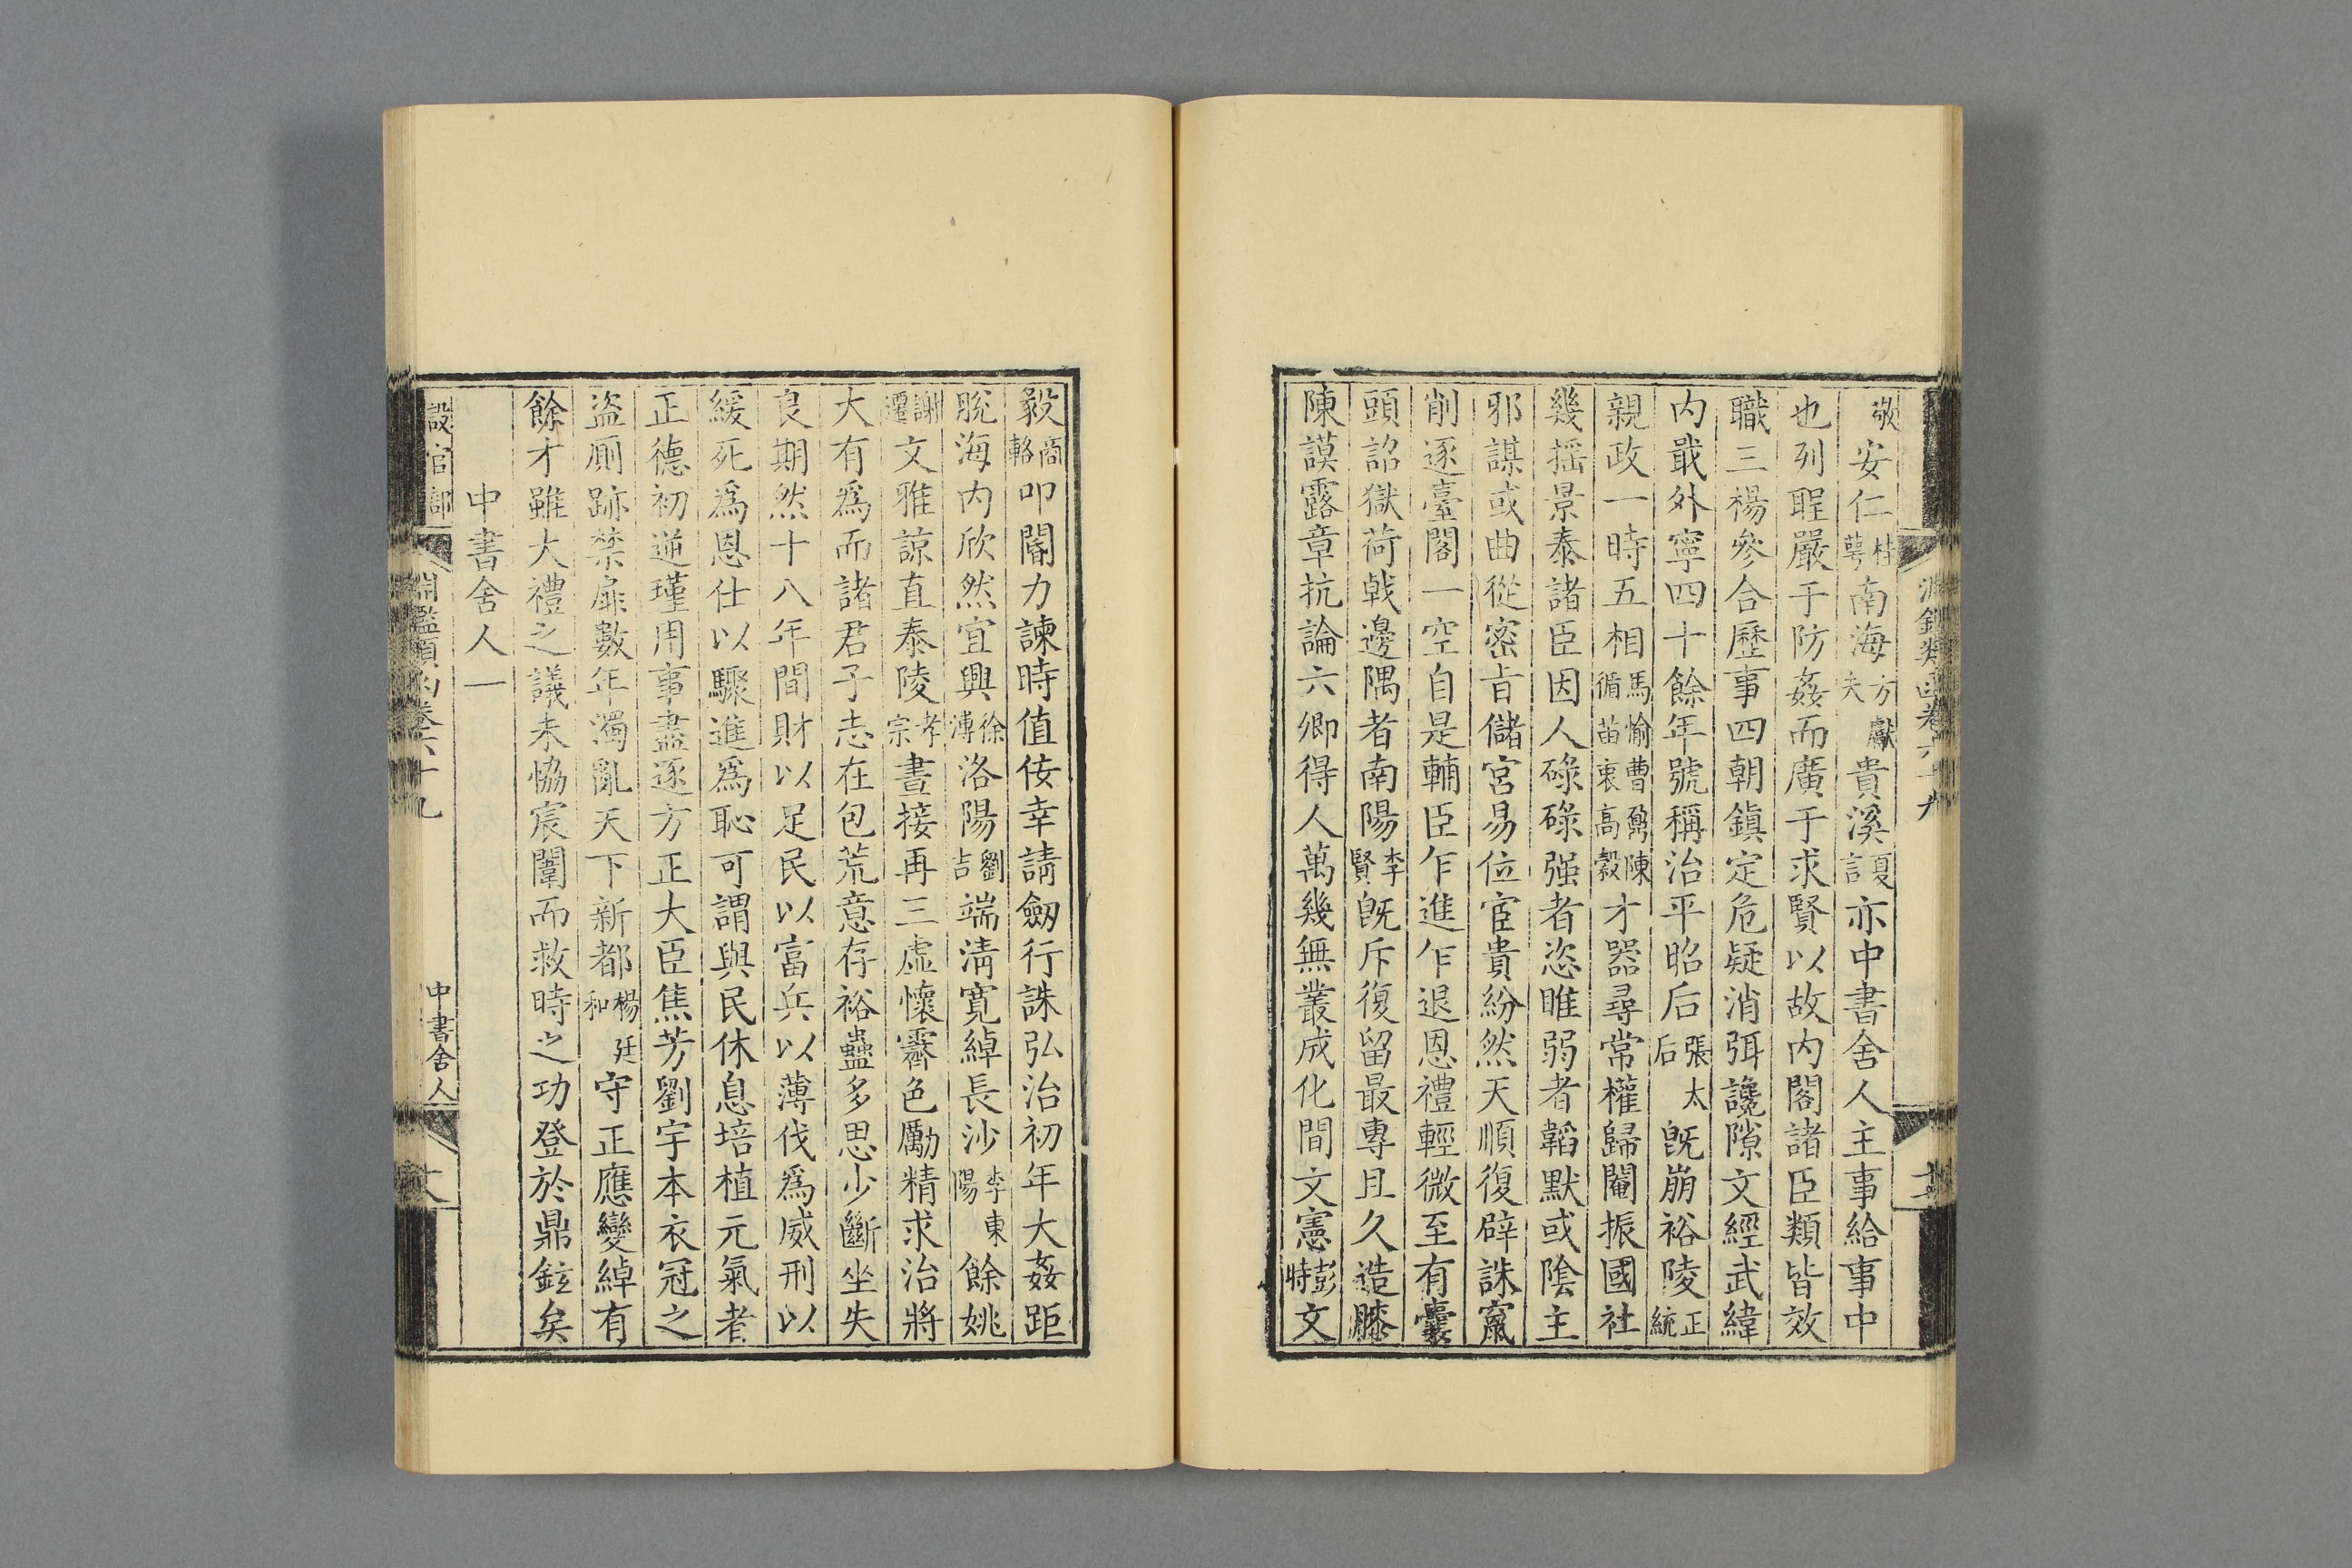 淵鑑類函卷六十九
敬安仁桂萼南海方獻夫貴溪夏言亦中書舍人主事給事中
也列聖嚴于防姦而廣于求賢以故内閣諸臣類皆效
職三楊參合歷事四朝鎮定危疑消弭讒隙文經武緯
内戢外寧四十餘年號稱治平昭后張太后旣崩裕陵正統
親政一時五相馬愉曹鼐陳循苗衷高穀才器尋常權歸閹振國社
幾揺景泰諸臣因人碌碌强者恣睢弱者韜默或陰主
邪謀或曲從密旨儲宮易位宦貴紛然天順復辟誅竄
削逐臺閣一空自是輔臣乍進乍退恩禮輕微至有囊
頭詔獄荷戟邊隅者南陽李賢旣斥復留最專且久造膝
陳謨露章抗論六卿得人萬幾無叢成化間文憲彭時文
毅商輅叩閽力諫時值佞幸請劔行誅弘治初年大姦距
脫海内欣然宜興徐溥洛陽劉吉端淸寛綽長沙李東陽餘姚
謝遷文雅諒直泰陵孝宗晝接再三虛懷霽色勵精求治將
大有爲而諸君子志在包荒意存裕蠱多思少斷坐失
良期然十八年間財以足民以富兵以薄伐爲威刑以
緩死爲恩仕以驟進爲恥可謂與民休息培植元氣者
正德初逆瑾用事盡逐方正大臣焦芳劉宇本衣冠之
盜厠跡禁扉數年濁亂天下新都楊廷和守正應變綽有
餘才雖大禮之議未恊宸闈而救時之功登於鼎鉉矣
中書舍人一
設官部
淵鑑類函卷六十九
中書舍人